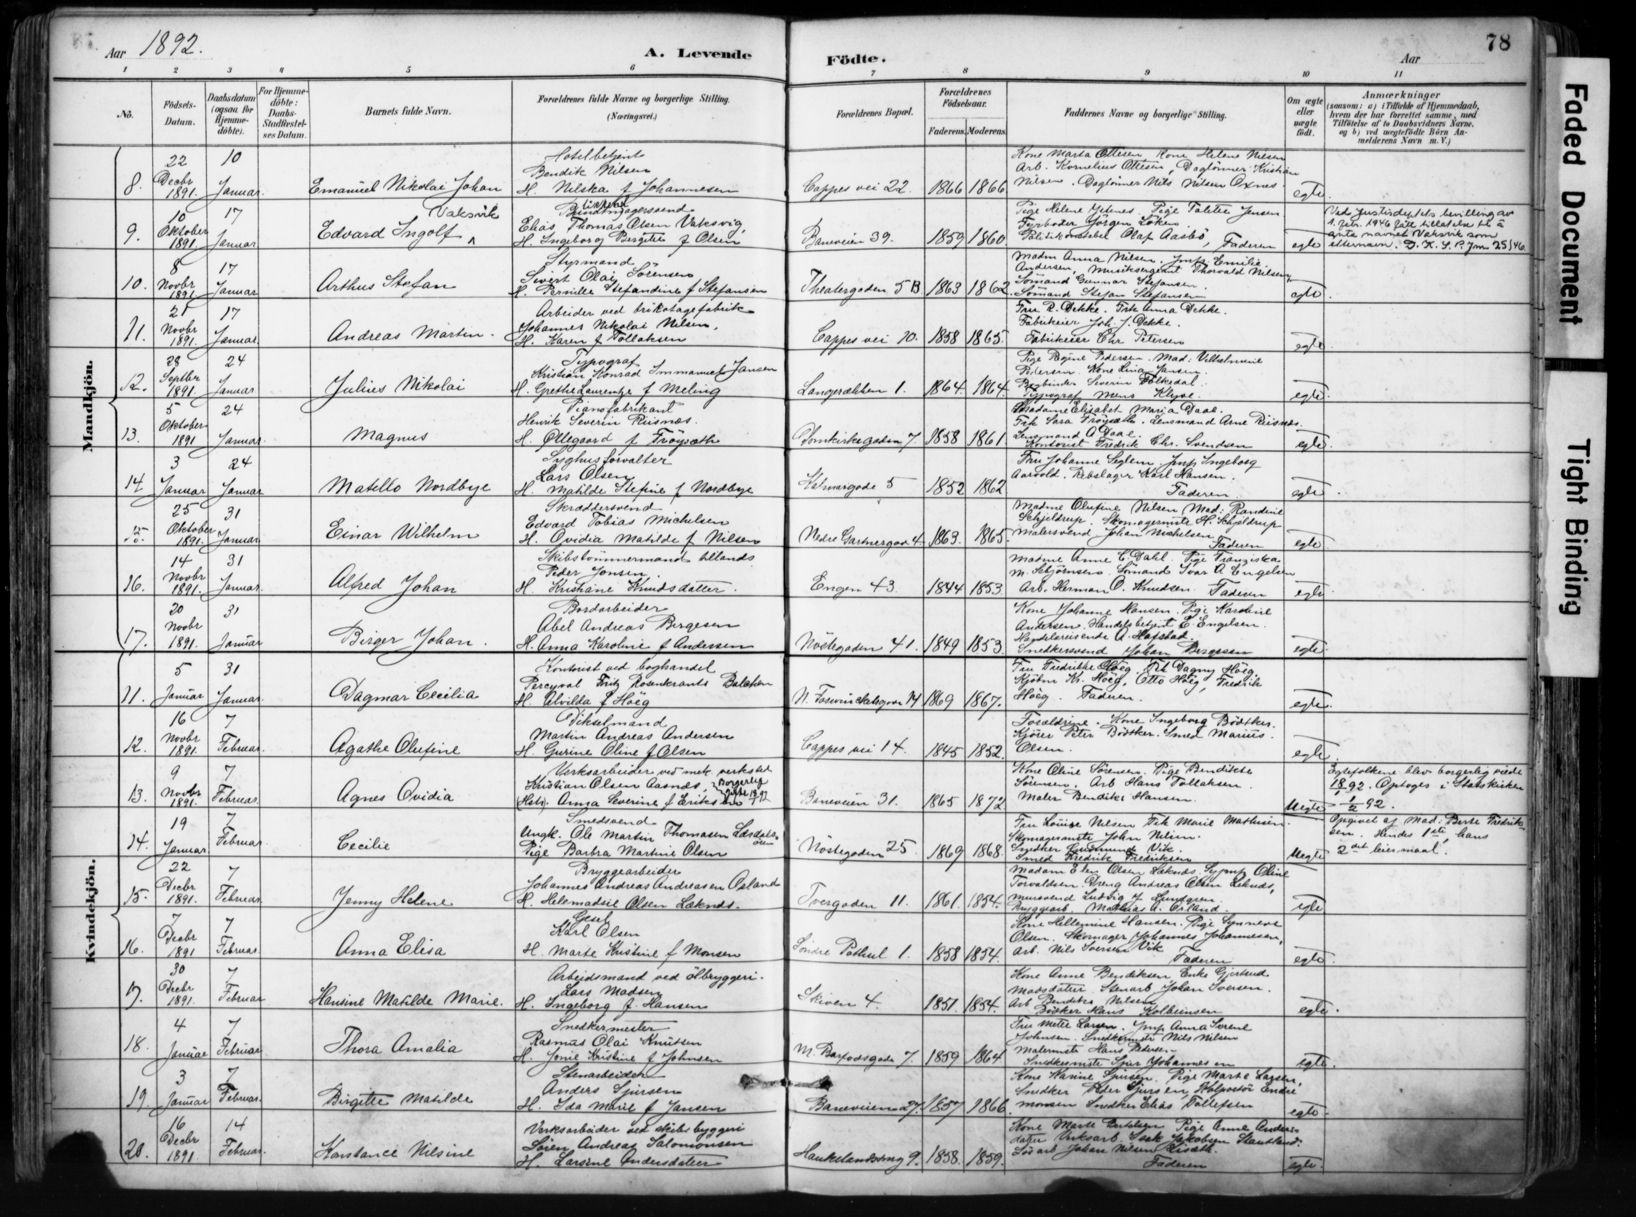 Aar 1892.
A. Levende
Födte.
Aar
78
1 2 3 4 5 6 7 8 9 10 11
No.
Födsels-Datum.
Daabsdatum (ogsaa for Hjemme-döbte).
For Hjemme-döbte: Daabs-Stadfæstel-ses Datum.
Barnets fulde Navn.
Forældrenes fulde Navne og borgerlige Stilling.
(Næringsvei.)
Forældrenes Bopæl.
Forældrenes Födselsaar.
Faderens. Moderens.
Faddernes Navne og borgerlige Stilling.
Om ægte eller uægte födt.
Anmærkninger
(saasom: a) i Tilfælde af Hjemmedaab,
hvem der har forrettet samme, med
Tilföielse af to Daabsvidners Navne,
og b) ved uægtefödte Börn An-
melderens Navn m. V.)
Mandkjön.
8. 22 Decbr 1891. 10 Januar. Emanuel Nikolai Johan
Hotelbetjent
Bendik Nilsen
H. Nilska f Johannesen
Cappes vei 22. 1866 1866
Kone Marta Ottesen Kone Helene Nilsen
Arb. Kornelius Ottesen, Daglönner Kristian
Nilsen. Daglönner Nils Nilsen
egte
9. 10 Oktober 1891. 17 Januar. Edvard Ingolf Vaksvik
Elias Thomas Olsen Vaksvig,
H. Ingeborg Birgitte f Olsen
Baneveien 39. 1859 1860
Politikonstabel Olaf Aasbö, Faderen
egte
Ved Justisdeptets bevilling av
1946 gitt tillatelse til å
anta navnet Vaksvik som
etternavn.
10. 8 Novbr 1891 17 Januar. Arthus Stefan
Styrmand
Sivert Olai Sörensen
H. Pernille Stefandine f Stefansen
Theatergaden 5 B 1863 1862
Madm Anna Nilsen. Jmf Emilie
Andersen, Musiksergeant Thorvald Nilsen
Sömand Gunnar Stefansen.
Sömand Stefan Stefansen
egte
11. 21 Novbr 1891. 17 Januar. Andreas Martin.
Arbeider ved trikotagefabrik
Johannes Nikolai Nilsen,
H. Karen f Tollaksen
Cappes vei 10. 1858 1865.
Fru R. Dekke. Frk Anna Dekke.
Fabrikeier Joh. J. Dekke.
Fabrikeier Chr Petersen
egte
12. 28 Septbr 1891 24 Januar. Julius Nikolai
Typograf
Kristian Konrad Immanuel Jansen
H. Grethe Laurentze f Meling
Langesælden 1. 1864. 1864.
Pige Regine Pedersen. Mad. Vilhelmine
Petersen Kone Lina Jansen.
Bogbinder Severin Folkedal.
Typograf Mons Klyve.
egte
13. 5 Oktober 1891 24 Januar. Magnus
Pianofabrikant
Henrik Severin Riisnæs.
H. Ottegaard f Fröysæth
Domkirkegaden 7. 1858 1861
Madame Elisabet Maria Daae.
Frk Sara Fröysæth. Lensmand Arne Riisnes.
Lensmand A Daae.
Kontorist Fredrik Chr. Svendsen
egte
14. 3 Januar 24 Januar Matello Nordbye
Syghusforvalter
Lars Olsen
H. Matilde Stefine f Nordbye
Kalmargade 5 1852 1862
Fru Johanne Seglem Jmf Ingeborg
Aarvold. Rebslager Karl Hansen.
Faderen
egte
15. 25 Oktober 1891. 31 Januar. Einar Wilhelm
Skræddersvend
Edvard Tobias Michelsen
H. Ovidia Matilde f Nilsen
Nedre Gartnergad 4. 1863. 1865.
Madme Olufine Nilsen Mad. Randine
Schjeldrup. Skomagermste H. Schjeldrup
Malersvend Johan Michelsen
Faderen
egte
16. 14 Novbr 1891. 31 Januar. Alfred Johan
Skibstömmermand utlands
Peder Jonsen
H. Kristiane Knudsdatter.
Engen 43. 1844 1853
Madme Anne C. Dahl. Pige Franziska
M. Asbjörnsen. Sömand Ivar A Engelsen
Arb. Herman O. Knudsen. Faderen
egte
17. 20 Novbr 1891. 31 Januar Birger Johan.
Bordarbeider
Abel Andreas Bergesen
H. Anna Karoline f Andersen
Nöstegaden 41. 1849 1853.
Kone Johanne Hansen. Pige Karoline
Andersen. Handelsbetjent E. Engelsen.
Handelsreisende A. Hafstad.
Snedkersvend Johan Bergesen
egte
Kvindekjön.
11. 5 Januar 31 Januar. Dagmar Cecilia
Kontorist ved boghandel
Percyval Fritz Rosenkrants Balchen
H. Alvilda f Höeg
1869 1867.
Fru Fredrikke Höeg Frk Dagny Höeg.
Kjöbm Kr. Höeg. Otto Höeg, Fredrik
Höeg. Faderen
egte
12. 16 Novbr 1891. 7 Februar. Agathe Olufine
Pikulmand
Martin Andreas Andersen
H. Gurine Oline f Olsen
Cappes vei 14. 1845 1852
Forældrene. Kone Ingeborg Bödtker.
Kjörer Peter Bödtker. Smed Marius
Olsen.
egte
13. 9 Novbr 1891. 7 Februar. Agnes Ovidia
Verksarbeider ved mek. verksted
Kristian Olsen Aasnæs,
Anna Severine f Eriksen
Baneveien 31. 1865 1872
Kone Oline Sörensen. Pige Bendikte
Sörensen. Arb Hans Tollaksen.
Maler Bendiks Hansen.
Uegte
Egtefolkene blev borgerlig viede
92. Optoges i Statskirken
92.
14. 19 Januar. 7 Februar. Cecilie
Smedsvend
Ungk. Ole Martin Thomasen Lærdals-
ören
Pige Barbra Martine Olsen
Nöstegaden 25. 1869 1868.
Fru Louise Nilsen Frk Marie Mathisen.
Skomagermste John Nilsen.
Snedker Gudmund Vik.
Smed Fredrik Fredriksen
Uegte
Opgivet af Mad. Berte Fredrik-
sen. Hendes 1ste, hans
2det leiermaal.
15. 22 Decbr 1891. 7 Februar. Jenny Helene
Bryggearbeider
Johannes Andreas Andreasen Asland
H. Helemadsie Olsen Leknes.
Tvergaden 11. 1861. 1854.
Madam Elen Olsen Leknes.
Torvaldsen. Dreng Andreas Olsen Leknes,
Mursvend Ludvig J. Lundgren
Bryggearb. Mathias A. Asland.
egte
16. 7 Decbr 1891 7 Februar. Anna Elisa
Karl Olsen
H. Marte Kristine f Monsen
Söndre 1. 1858 1854.
Kone Hellemine Hansen. Pige Synneve
Olsen. Skomager Johannes Johannesen,
Arb. Nils Iversen Vik.
Faderen
egte
17. 30 Decbr 1891. 7 Februar Hansine Matilde Marie.
Arbeidsmand ved ölbryggeri.
Lars Madsen
H. Ingeborg f Hansen
Skiven 4. 1851. 1854.
Kone Anne Bendiksen. Enke Gjertrud
Madsdatter. Stenarb. Johan Iversen.
Arb Bendiks Nilsen
Bödker Hans Kolbeinsen
egte
18. 4 Januar 7 Februar. Thora Amalia
Snedkermester
Rasmus Olai Knutsen
H. Jonie Kristine f Johnsen
7. 1859 1864
Fru Mette Larsen. Jmf Anna Severine
Johnsen. Snedkermst Nils Nilsen
Malermste Hans Pedersen
Snedkermste Sjur Johannesen
egte
19. 3 Januar 7 Februar. Birgitte Matilde
Stenarbeider
Anders Sjursen
H. Ida Marie f Jansen
Baneveien 27. 1857 1866.
Kone Karine Sjursen. Pige Marte Larsen,
Snedker Peder Sjursen, Endre
Monsen Snedker Elias Tollefsen
egte
20. 16 Decbr 1891 14 Februar. Konstance Nilsine
Verksarbeider ved skibsbyggeri
Sören Andreas Salomonsen
H. Larsine Andersdatter
Haukelandsveg 9. 1858. 1859.
Kone Marte Pige Anne Anders-
datter Verksarb. Isak Jakobsen
Johan Nilsen
Faderen
egte.
Faded Document
Tight Binding